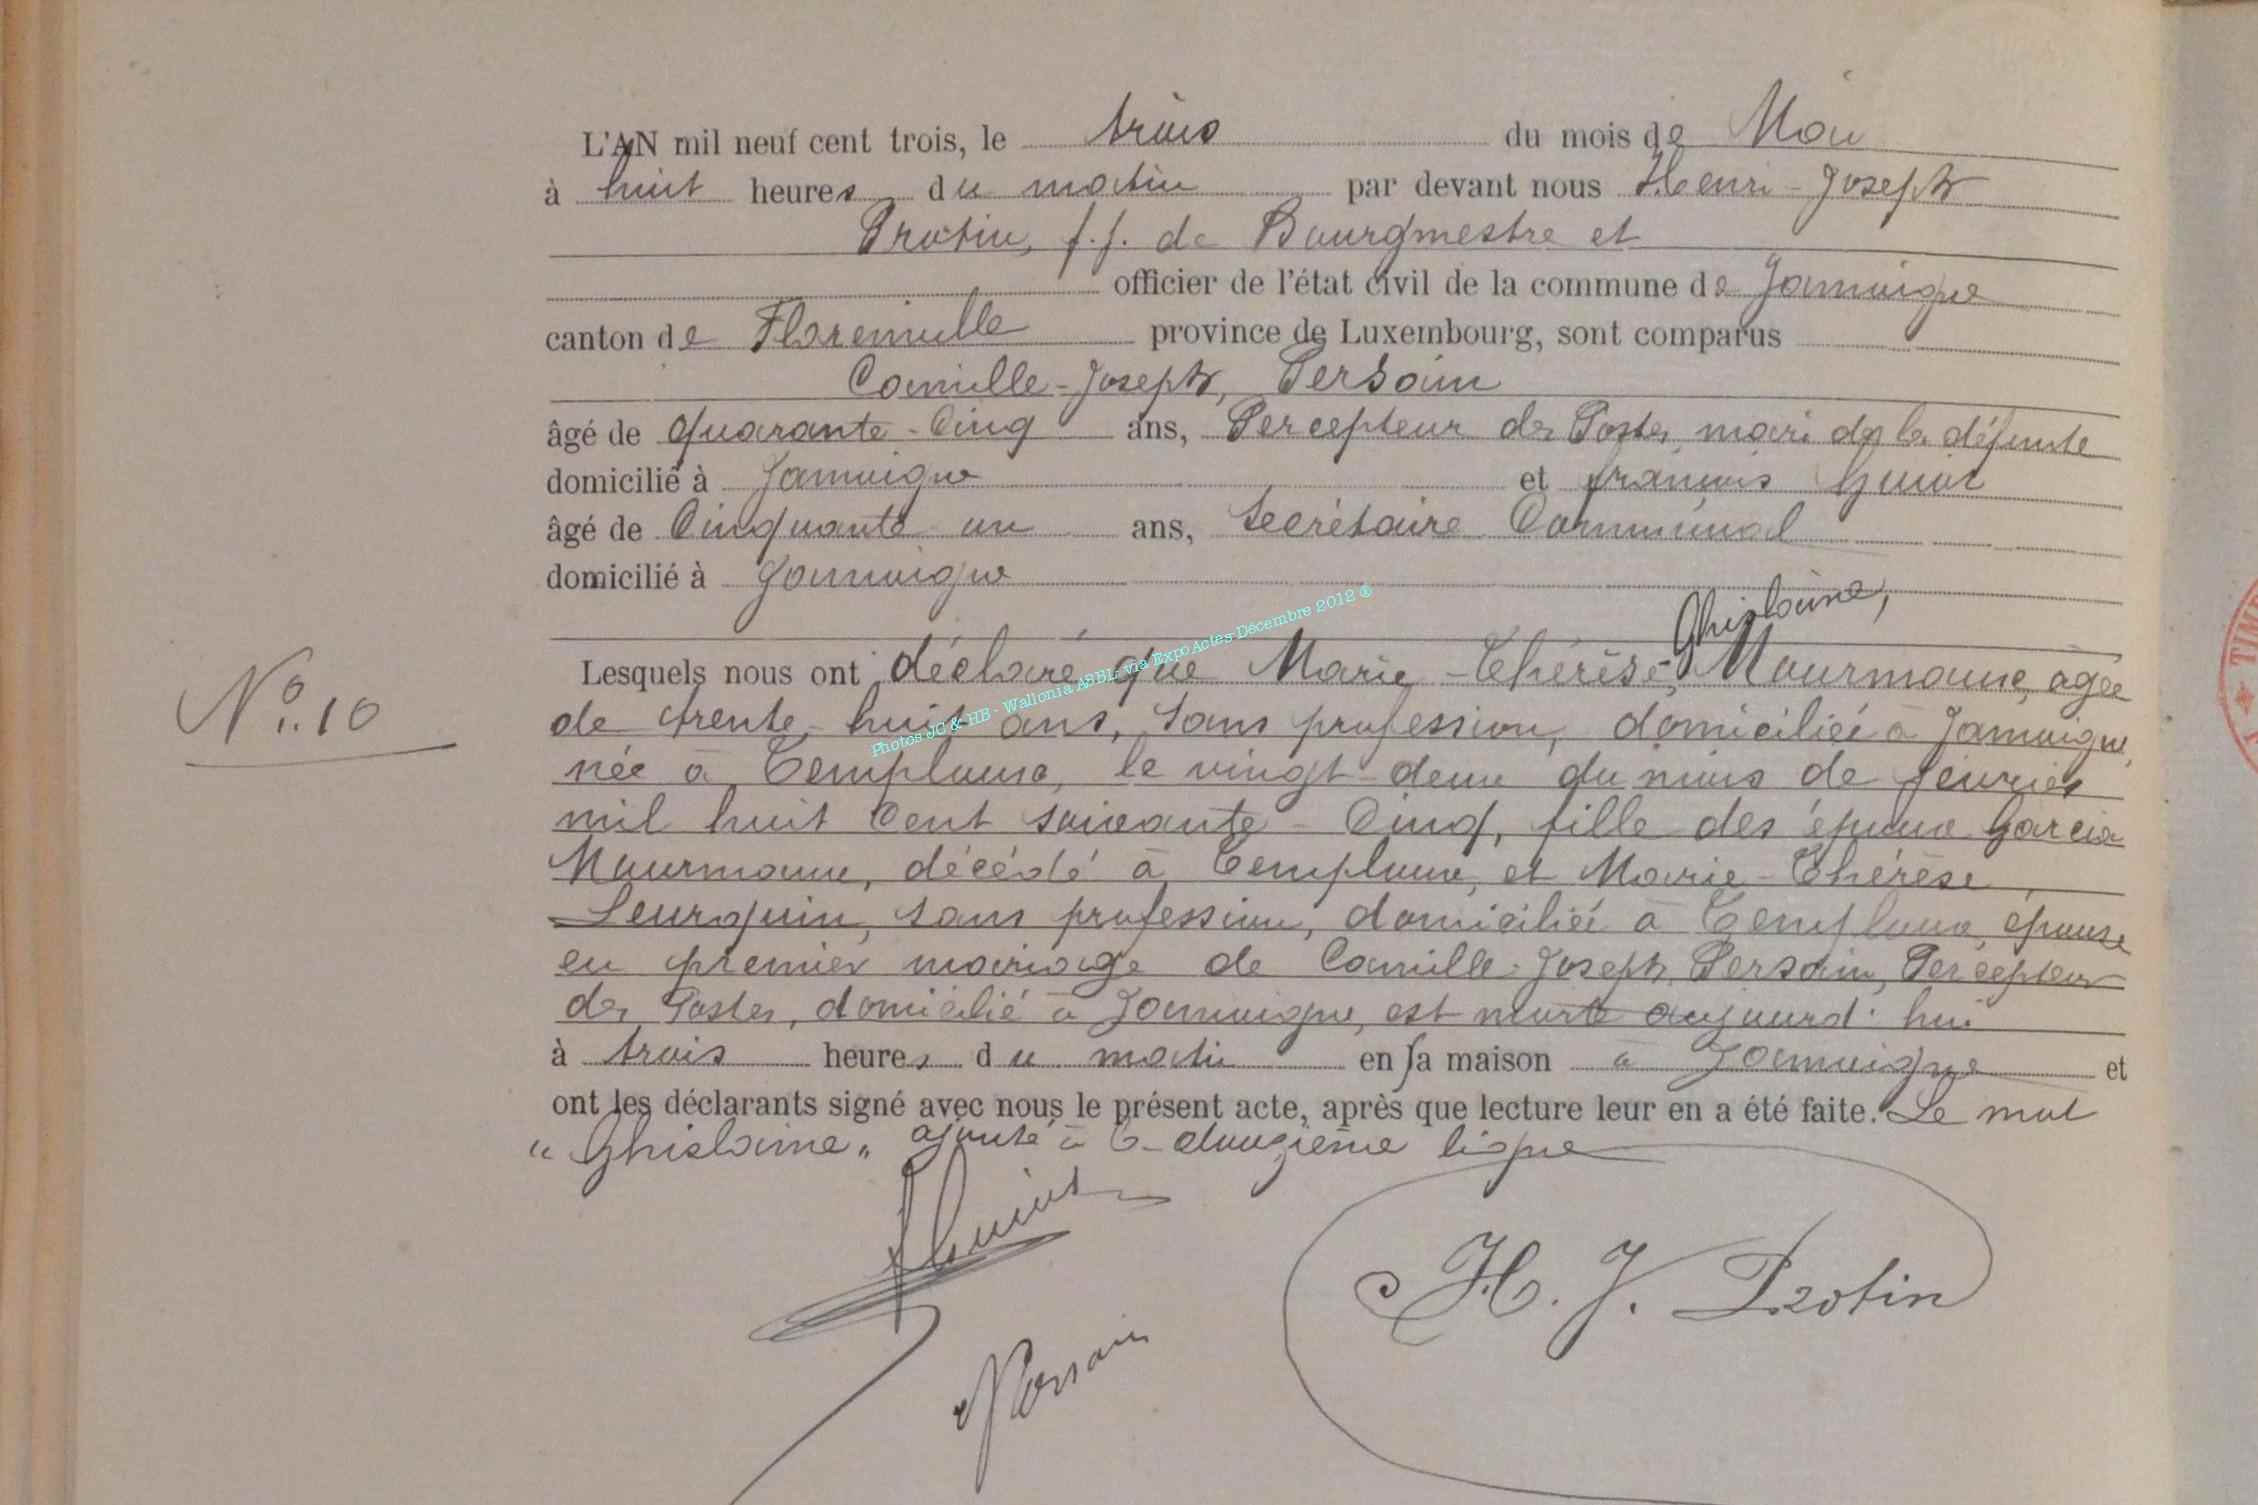 L'AN mil neuf cent trois, le trois du mois de Mai
à huit heures du matin par devant nous Henri-Joseph
Protin, f.f. de Bourgmestre et
officier de l'état civil de la commune de Jamoigne
canton de Florenville province de Luxembourg, sont comparus
Camille-Joseph, Persain
âgé de quarante-Cinq ans, Percepteur des Postes, mari de la défunte
domicilié à Jamoigne et françois Guiot
âgé de Cinquante un ans, Secrétaire Communal
domicilié à Jamoigne
Ghislaine,
Lesquels nous ont déclaré que Marie-Thérèse, Mourmaux, âgée
No. 10
de trente-huit ans, sans profession, domiciliée à Jamoigne,
née à Temploux, le vingt-deux du mois de février
mil huit Cent soixante-Cinq, fille des époux Garcia
Mourmaux, décédé à Temploux, et Marie-Thérèse
Leurquin, sans profession, domiciliée à Temploux, épouse
en premier mariage de Camille-Joseph Persain, Percepteur
des Postes, domicilié à Jamoigne, est morte aujourd'hui
à trois heures du matin en sa maison à Jamoigne et
ont les déclarants signé avec nous le présent acte, après que lecture leur en a été faite. Le mot
"Ghislaine" ajouté à la douzième ligne
Guiot
H. J. Protin
Persain
Photos JC & HB - Wallonia ASBL via ExpoActes Décembre 2012 ®
TIMB